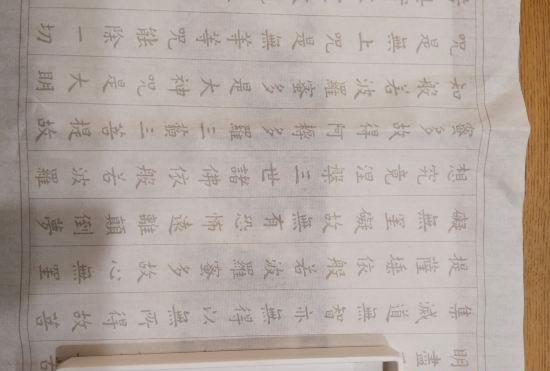 明盡
集滅道無智亦無得以無所得故菩
提薩埵依般若波羅蜜多故心無罣
礙無罣礙故無有恐怖遠離顛倒夢
想究竟涅槃三世諸佛依般若波羅
蜜多故得阿耨多羅三藐三菩提故
知般若波羅蜜多是大神咒是大明
咒是無上咒是無等等咒能除一切